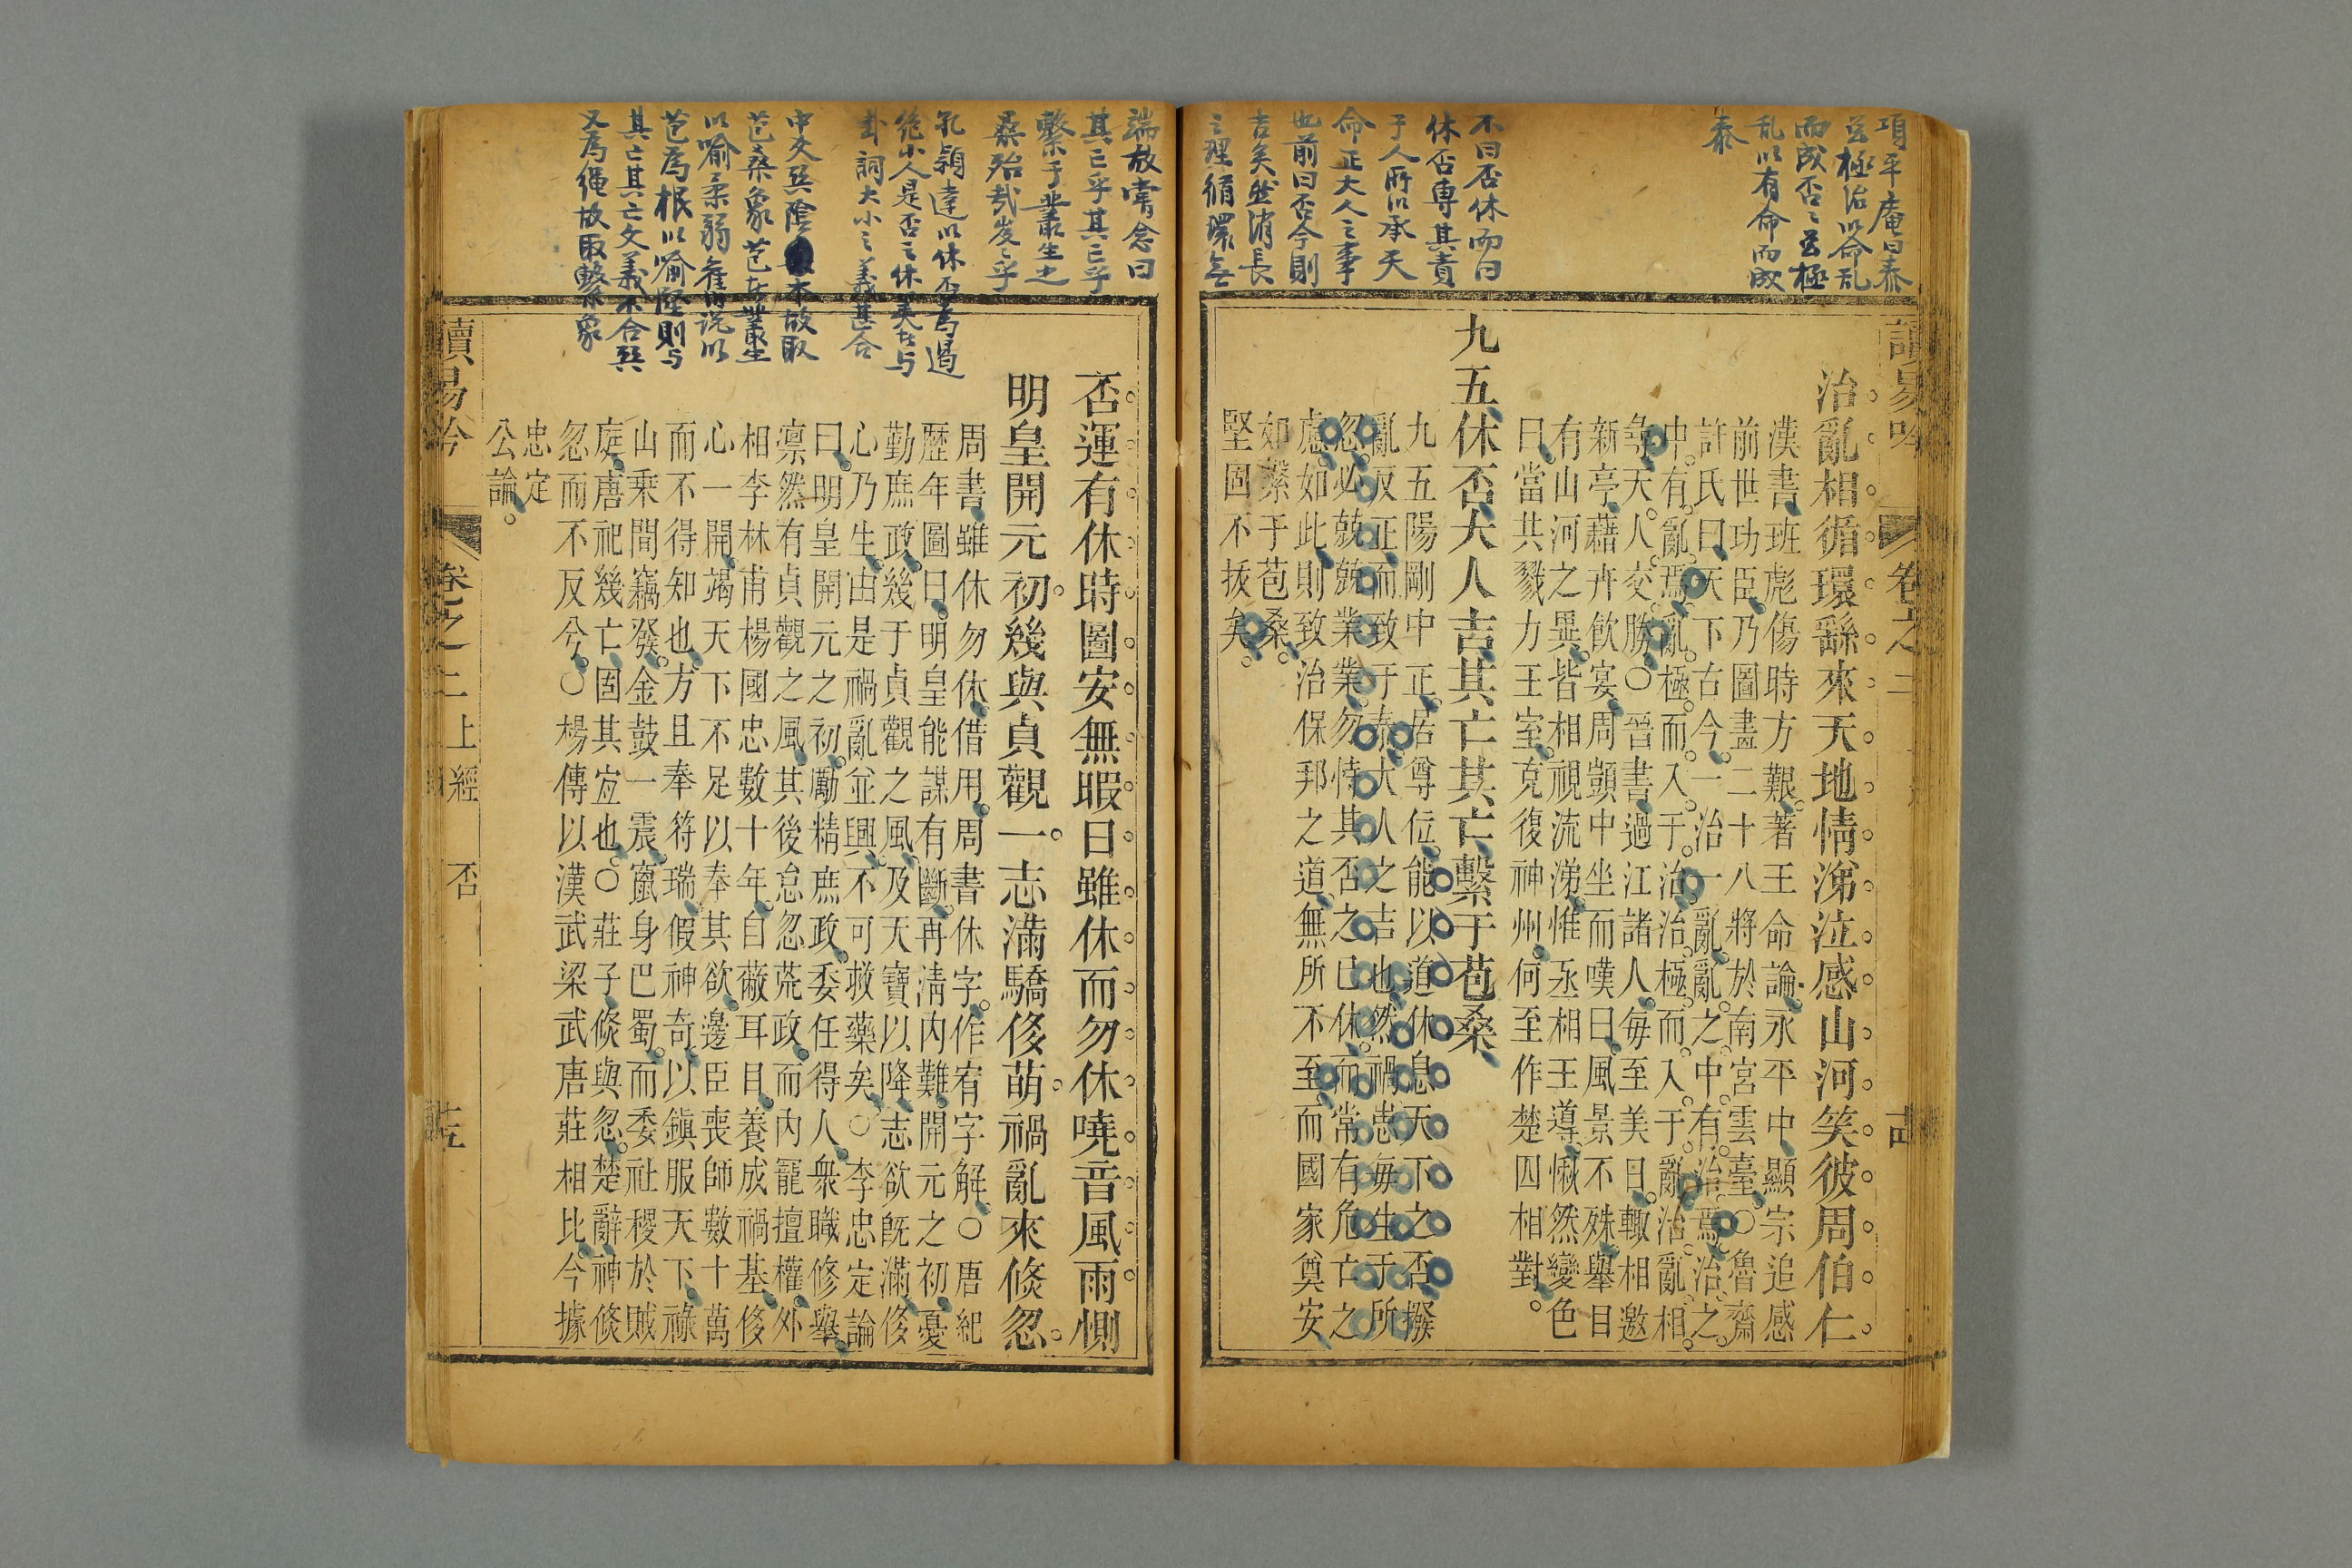 項平庵曰泰
極治以命乱
而成否否極
乱以有命而成
泰
不曰否休而曰
休否専其責
于人所以承天
命正大人之事
也前曰否今則
吉矣然消長
之理循環無
讀易吟
卷之二
治亂相循環繇來天地情涕泣感山河笑彼周伯仁
漢書班彪傷時方艱著王命論永平中顯宗追感
前世功臣乃圖畫二十八將於南宮雲臺○魯齋
許氏曰天下古今一治一亂亂之中有治焉治之
中有亂焉亂極而入于治治極而入于亂治亂相
尋天人交勝○晉書過江諸人每至美日輙相邀
新亭藉卉飲宴周顗中坐而嘆曰風景不殊舉目
有山河之異皆相視流涕惟丞相王導愀然變色
曰當共戮力王室克復神州何至作楚囚相對
九五休否大人吉其亡其亡繫于苞桑
九五陽剛中正居尊位能以道休息天下之否撥
亂反正而致于泰大人之吉也然禍患每生于所
忽必兢兢業業勿恃其否之已休而常有危亡之
慮如此則致治保邦之道無所不至而國家奠安
如繫于苞桑
堅固不拔矣
端故當念曰
其亡乎其亡乎
繫于叢生之
桑殆哉岌岌乎
孔穎達以休否為遏
絕小人是否之休美在与
卦詞大小之義甚合
中爻巽陰木故取
苞桑象苞在叢生
以喻柔弱舊說以
苞為根以喻堅則与
其亡其亡文義不合巽
又為繩故取繫象
否運有休時圖安無暇日雖休而勿休嘵音風雨惻
明皇開元初幾與貞觀一志滿驕侈萌禍亂來倐忽
周書雖休勿休借用周書休字作宥字解○唐紀
歷年圖曰明皇能謀有斷再清內難開元之初憂
勤庶政幾于貞觀之風及天寶以降志欲既滿侈
心乃生由是禍亂並興不可救藥矣○李忠定論
曰明皇開元之初勵精庶政委任得人衆職修舉
凛然有貞觀之風其後怠忽荒政而內寵擅權外
相李林甫楊國忠數十年自蔽耳目養成禍基侈
心一開竭天下不足以奉其欲邊臣喪師數十萬
而不得知也方且奉符瑞假神奇以鎮服天下祿
山乘間竊發金鼓一震竄身巴蜀而委社稷於賊
庭唐祀幾亡固其宜也○莊子倐與忽楚辭神倐
忽而不反兮○楊傳以漢武梁武唐莊相比今據
忠定
公論
讀易吟
卷之二
上經
否